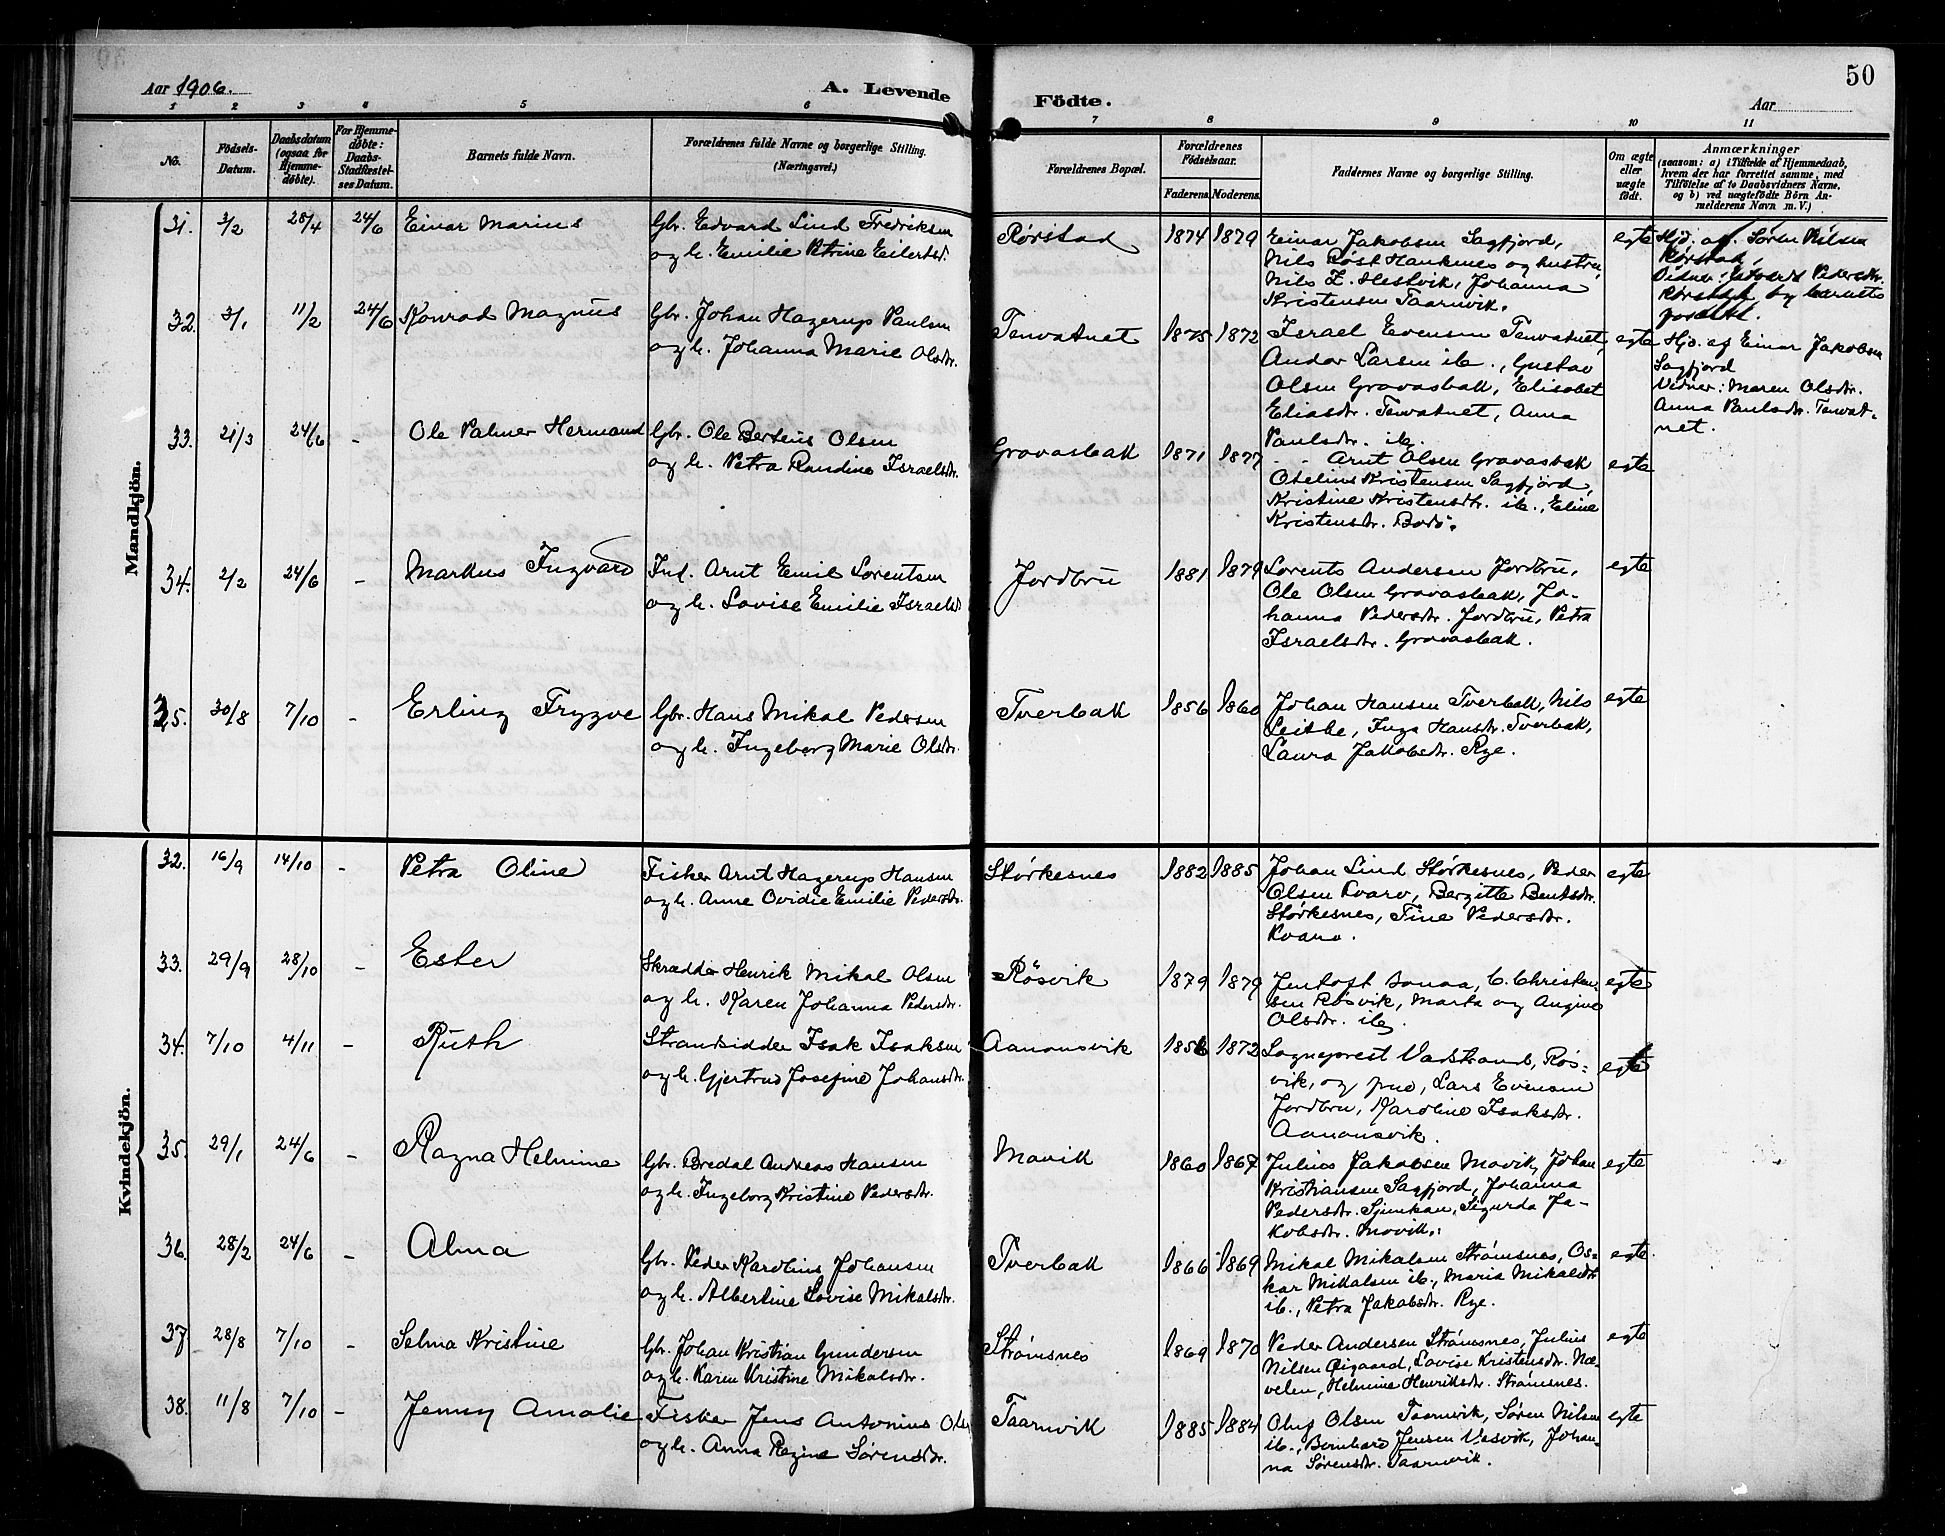 50
Aar 1906.
A. Levende
Födte.
Aar
1 2 3 4 5 6 7 8 9 10 11
No.
Födsels-
Datum.
Daabsdatum
(ogsaa for
Hjemme-
døbte).
For Hjemme-
døbte:
Daabs-
Stadfæstel-
ses Datum.
Barnets fulde Navn.
Forældrenes fulde Navne og borgerlige Stilling.
(Næringsvei.)
Forældrenes Bopæl.
Forældrenes
Födselsaar.
Faderens. Moderens.
Faddernes Navne og borgerlige Stilling.
Om ægte
eller
uægte
født.
Anmærkninger
(saasom: a) i Tilfælde af Hjemmedaab,
hvem der har forrettet samme, med
Tilføielse af to Daabsvidners Navne,
og b) ved uægtefødte Börn An-
melderens Navn m. V.)
Mandkjön.
31. 3/2 25/4 24/6 Einar Marius
Gbr. Edvard Lind Fredriksen
og h. Emilie Petrine Eilertsd.
Rørstad 1874 1879
Einar Jakobsen Sagfjord,
Nils Røst Haukenes og hustru,
Nils Z. Hestvik, Johanna
Kristensen Taarnvik.
egte
Hjd. af. Søren Nilsen
Rørstad.
32. 3/1 11/2 24/6 Konrad Magnus
Gbr. Johan Hagerup Paulsen
og h. Johanna Marie Olsdtr.
Tenvatnet 1875 1872
Israel Evensen Tenvatnet,
Andor Larsen ib., Gustav
Olsen Gravasbak, Elisabet
Eliasdtr. Tenvatnet, Anna
Paulsdtr. ib.
egte
Hjd. af Einar Jakobsen
Sagfjord
Vidner: Maren Olsdtr.
Anna Paulsdtr. Tenvat-
net.
33. 21/3 24/6 - Ole Palmer Hermand
Gbr. Ole Bertius Olsen
og h. Petra Randine Israelsdtr.
Gravasbak 1871 1877
Arnt Olsen Gravasbak
Otelius Kristensen Sagfjord,
Kristine Kristensdtr. ib., Eline
Kristensdtr. Bodø.
egte
34. 2/2 24/6 - Markus Ingvard
Ind. Arnt Emil Lorentsen
og h. Lovise Emilie Israelsd.
Jordbru 1881 1879
Lorents Andersen Jordbru,
Ole Olsen Gravasbak, Jo-
hanna Pedersdtr. Jordbru, Petra
Israelsdtr. Gravasbak.
egte
35. 30/8 7/10 - Erling Tryggve
Gbr. Hans Mikal Pedersen
og h. Ingeborg Marie Olsdtr.
Tverbak 1856 1860
Johan Hansen Tverbak, Nils
Leithe, Inga Hansdtr. Tverbak,
Laura Jakobsdtr. Rye.
egte
Kvindekjön.
32. 16/9 14/10 - Petra Oline
Fisker Arnt Hagerup Hansen
og h. Anne Ovidie Emilie Pedersdtr.
Størkesnes 1882 1885
Johan Lind Størkesnes, Peder
Olsen Kvarv, Bergitte Bentsdtr.
Størkesnes, Tine Pedersdtr.
egte
33. 29/9 28/10 - Ester
Skrædder Henrik Mikal Olsen
og h. Karen Johanna Pedersdtr.
Røsvik 1879 1879
Jentoft C. Christen-
sen Røsvik, Marta og Angine
Olsdtr. ib.
egte
34. 7/10 4/11 - Ruth
Strandsidder Isak Isaksen
og h. Gjertrud Josefine Johansdtr.
Aanonsvik 1856 1872
Sogneprest Vadstrand, Røs-
vik, og frue, Lars Evensen
Jordbru, Karoline Isaksdtr.
Aanonsvik.
egte
35. 29/1 24/6 - Ragna Helmine
Gbr. Bredal Andreas Hansen
og h. Ingeborg Kristine Pedersdtr.
Movik 1860 1867
Julius Jakobsen Movik, Johan
Kristiansen Sagfjord, Johanna
Pedersdtr. Sjunkan, Sigurda Ja-
kobsdtr. Movik.
egte
36. 28/2 24/6 - Alma
Gbr. Peder Karolius Johansen
og h. Albertine Lovise Mikalsdtr.
Tverbak 1866 1869
Mikal Mikalsen Strømsnes, Os-
kar Mikalsen ib., Maria Mikalsdtr.
ib., Petra Jakobsdtr. Rye.
egte
37 28/8 7/10 - Selma Kristine
Gbr. Johan Kristian Gundersen
og h. Karen Kristine Mikalsdtr.
Strømsnes 1869 1870
Peder Andersen Strømsnes, Julius
Nilsen Øigaard, Lovise Kristensdtr. Næ-
velen, Helmine Henriksdtr. Strømsnes.
egte
38. 11/8 7/10 - Jenny Amalie
Fisker Jens Antonius Ols
og h. Anna Regine Sørensdtr.
Taarnvik 1885 1884
Oluf Olsen Taarnvik, Søren Nilsen
ib., Bernhard Jensen Vasvik, Johan-
na Sørensdtr. Taarnvik.
egte